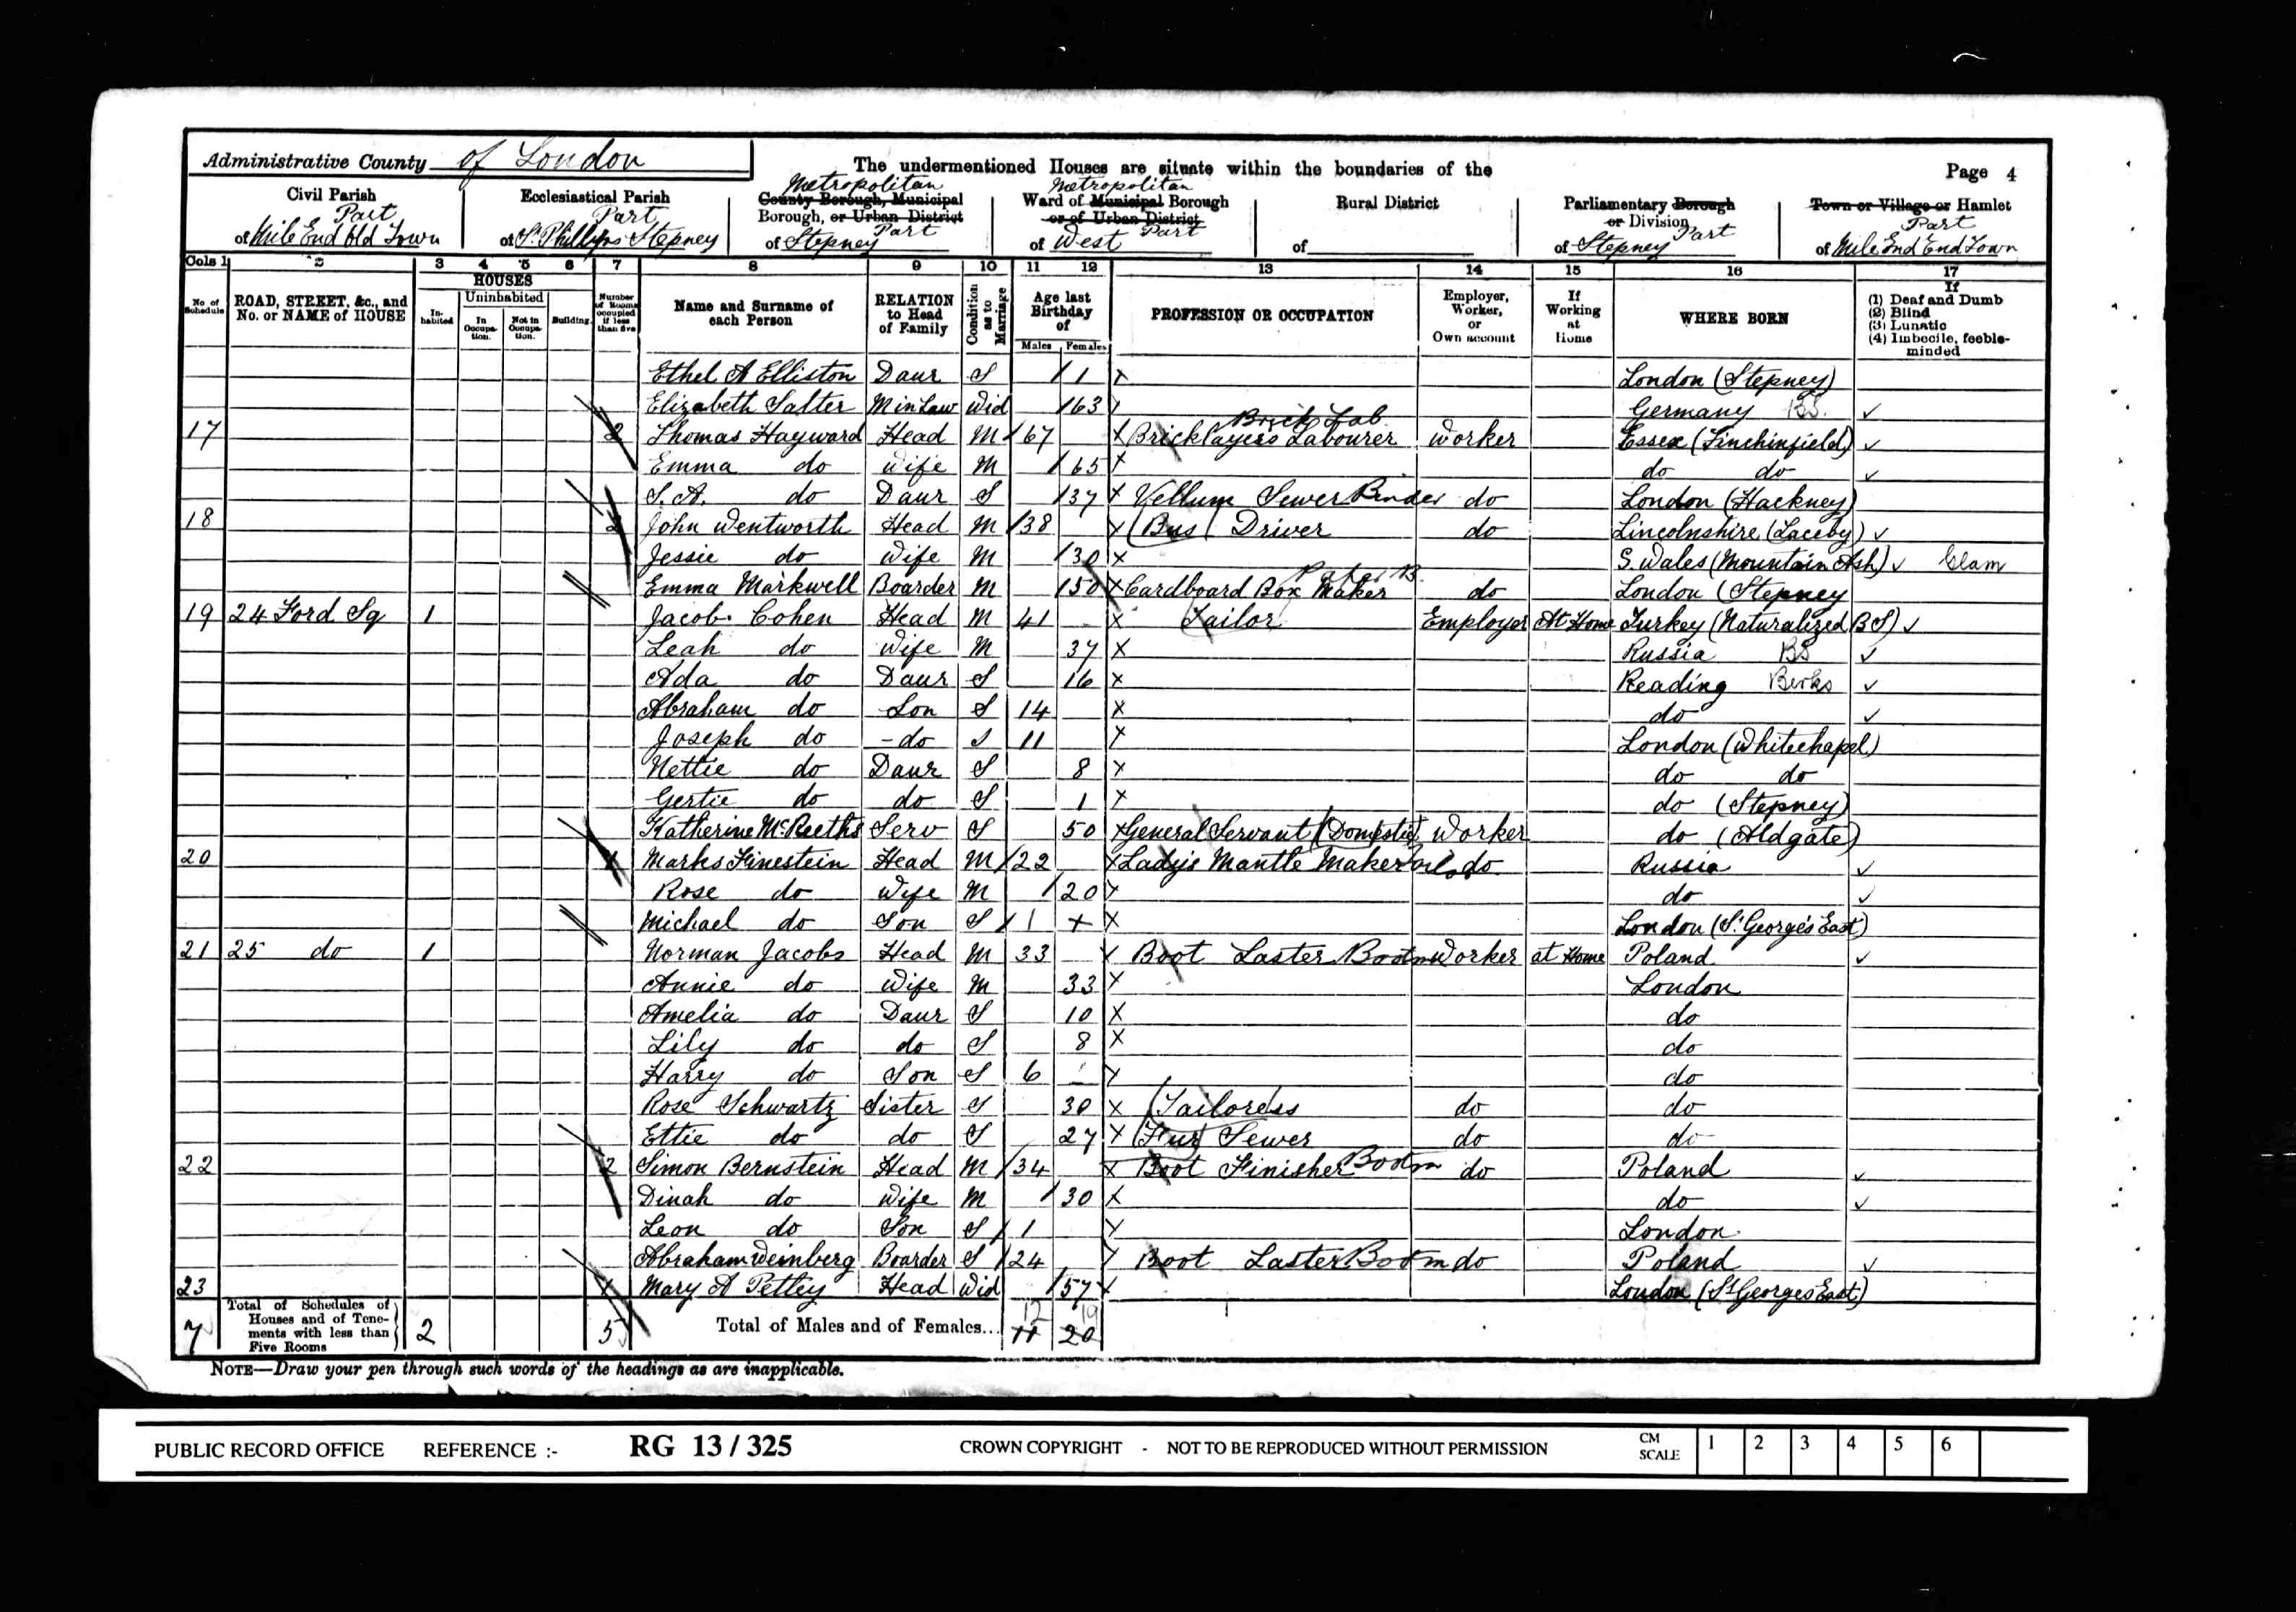 Administrative County of London
The undermentioned Houses are situate within the boundaries of the
Page 4
Civil Parish Part of Mile End Old Town
Ecclesiastical Parish Part of St Phillips Stepney
Metropolitan County Borough, Municipal Borough, or Urban District Part of Stepney
Metropolitan Ward of Municipal Borough or of Urban District Part of West
Rural District of
Parliamentary Borough or Division Part of Stepney
Town or Village or Hamlet Part of Mile End End Town
Cols 1 2 3 4 5 6 7 8 9 10 11 12 13 14 15 16 17
No. of Schedule
ROAD, STREET, &c., and No. or NAME of HOUSE
HOUSES
Inhabited
Uninhabited
In Occupation.
Not in Occupation.
Building.
Number of Rooms occupied if less than five
Name and Surname of each Person
RELATION to Head of Family
Condition as to Marriage
Age last Birthday of
Males Females
PROFESSION OR OCCUPATION
Employer, Worker, or Own account
If Working at Home
WHERE BORN
If
(1) Deaf and Dumb
(2) Blind
(3) Lunatic
(4) Imbecile, feeble-minded
Ethel A Elliston Daur S 1 X London (Stepney)
Elizabeth Salter M in Law Wid 63 X Germany BS.
17 2 Thomas Hayward Head M 67 X Bricklayers Labourer Brick Lab Worker Essex (Finchinfield)
Emma do Wife M 65 X do do
S. A. do Daur S 37 X Vellum Sewer Binder do London (Hackney)
18 2 John Wentworth Head M 38 X Bus Driver do Lincolnshire (Laceby)
Jessie do Wife M 30 X S. Wales (Mountain Ash) Glam
Emma Markwell Boarder M 50 X Cardboard Box Maker Paper B. do London (Stepney
19 24 Ford Sq 1 Jacob Cohen Head M 41 X Tailor Employer At Home Turkey (Naturalized BS)
Leah do Wife M 37 X Russia BS
Ada do Daur S 16 X Reading Berks
Abraham do Son S 14 X do
Joseph do do S 11 X London (Whitechapel)
Nettie do Daur S 8 X do do
Gertie do do S 1 X do (Stepney)
Katherine McReeths Serv S 50 X General Servant (Domestic) Worker do (Aldgate)
20 1 Marks Finestein Head M 22 X Ladys Mantle Maker do Russia
Rose do Wife M 20 X do
Michael do Son S 1 X X London (St George's East)
21 25 do 1 Norman Jacobs Head M 33 X Boot Laster Boot m Worker at Home Poland
Annie do Wife M 33 X London
Amelia do Daur S 10 X do
Lily do do S 8 X do
Harry do Son S 6 X do
Rose Schwartz Sister S 30 X Tailoress do do
Ettie do do S 27 X Fur Sewer do do
22 2 Simon Bernstein Head M 34 X Boot Finisher Boot m do Poland
Dinah do Wife M 30 X do
Leon do Son S 1 X London
Abraham Weinberg Boarder S 24 X Boot Laster Boot m do Poland
23 1 Mary A Petley Head Wid 57 X London (St Georges East)
7 Total of Schedules of Houses and of Tenements with less than Five Rooms 2 5 Total of Males and of Females... 12 11 19 20
NOTE—Draw your pen through such words of the headings as are inapplicable.
PUBLIC RECORD OFFICE REFERENCE :- RG 13 / 325 CROWN COPYRIGHT - NOT TO BE REPRODUCED WITHOUT PERMISSION CM SCALE 1 2 3 4 5 6